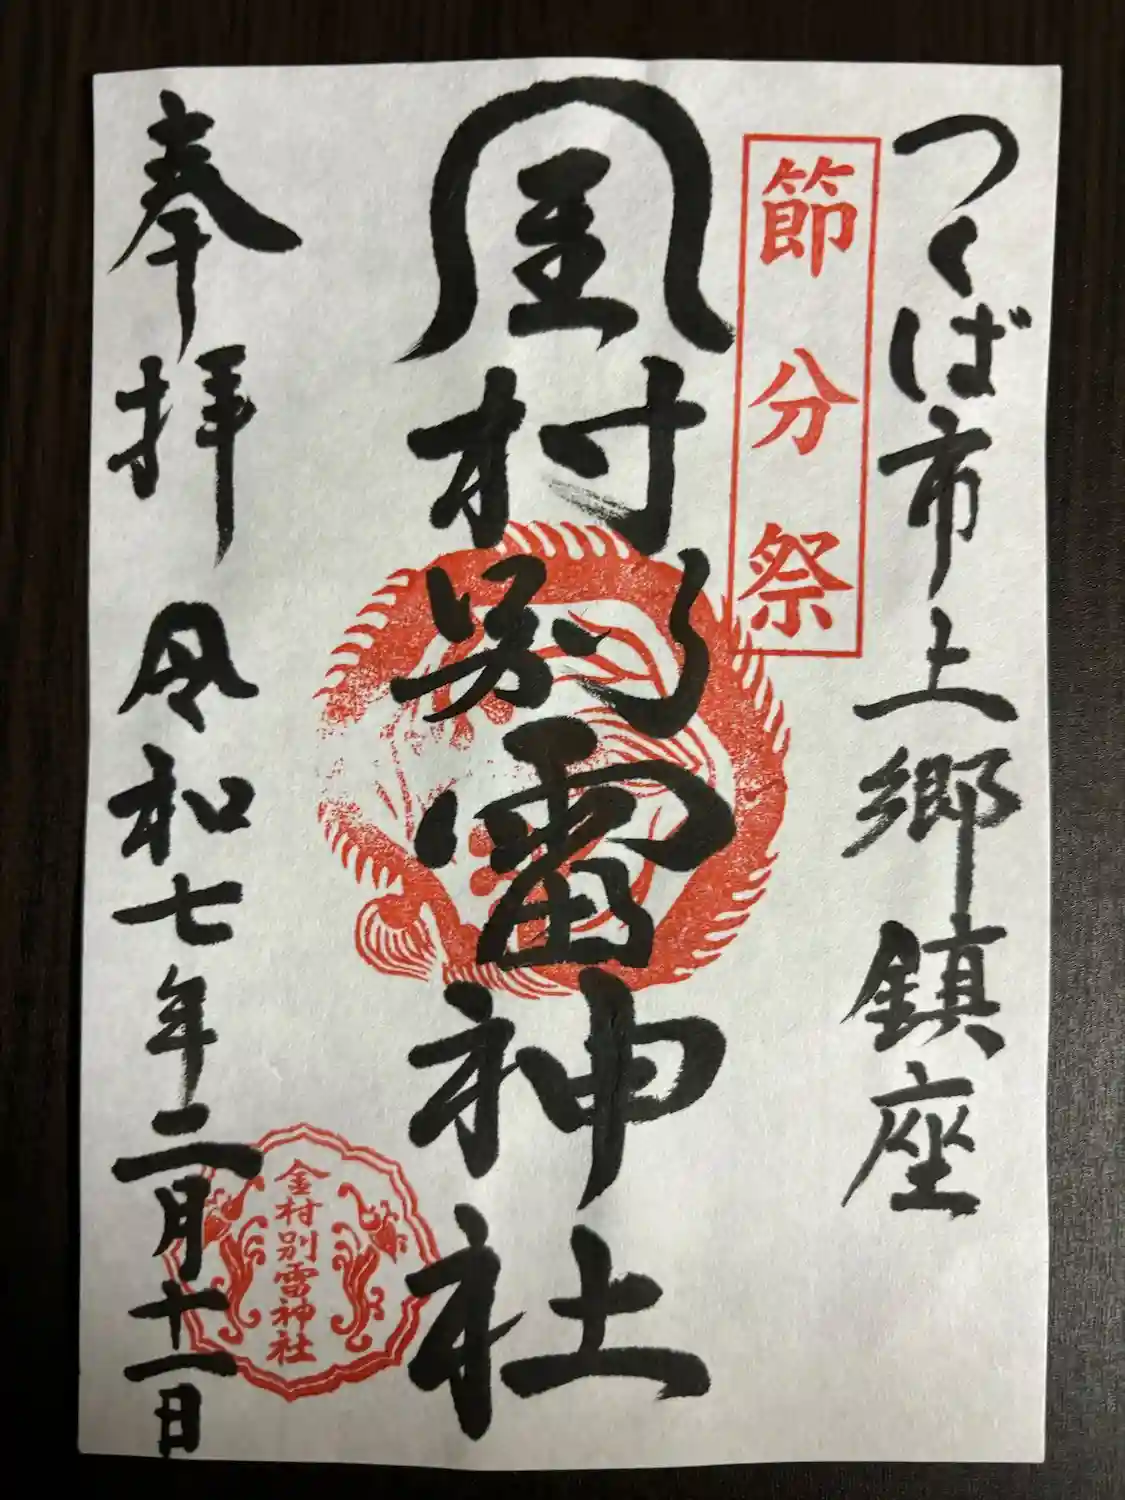 つくば市上郷鎮座
節分祭
金村別雷神社
奉拝 令和七年二月十一日
金村別雷神社